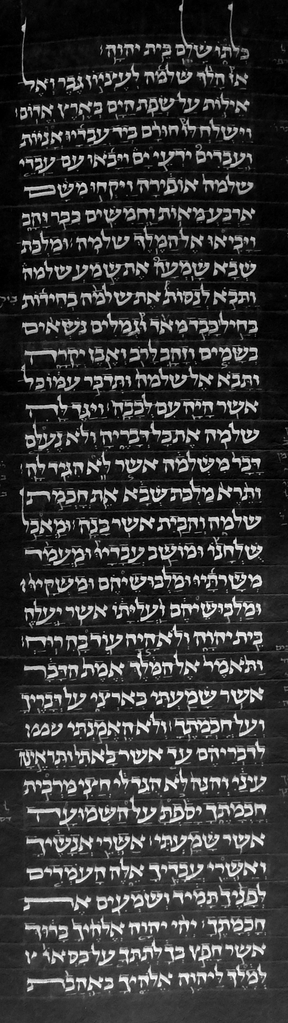 כלתו שלם בית יהוה׃
אז הלך שלמה לעציון גבר ואל
אילות על שפת הים בארץ אדום׃
וישלח לו חורם ביד עבדיו אניות
ועבדים ידעי ים ויבאו עם עבדי
שלמה אופירה ויקחו משם
ארבע מאות וחמשים ככר זהב
ויביאו אל המלך שלמה׃ ומלכת
שבא שמעה את שמע שלמה
ותבא לנסות את שלמה בחידות
בחיל כבד מאד וגמלים נשאים
בשמים וזהב לרב ואבן יקרה
ותבא אל שלמה ותדבר עמו כל
אשר היה עם לבבה׃ ויגד לה
שלמה את כל דבריה ולא נעלם
דבר משלמה אשר לא הגיד לה׃
ותרא מלכת שבא את חכמת
שלמה והבית אשר בנה׃ ומאכל
שלחנו ומושב עבדיו ומעמד
משרתיו ומלבושיהם ומשקיו
ומלבושיהם ועליתו אשר יעלה
בית יהוה ולא היה עוד בה רוח׃
ותאמר אל המלך אמת הדבר
אשר שמעתי בארצי על דבריך
ועל חכמתך׃ ולא האמנתי
לדבריהם עד אשר באתי ותראינה
עיני והנה לא הגד לי חצי מרבית
חכמתך יספת על השמועה
אשר שמעתי׃ אשרי אנשיך
ואשרי עבדיך אלה העמדים
לפניך תמיד ושמעים את
חכמתך׃ יהי יהוה אלהיך ברוך
אשר חפץ בך לתתך על כסאו
למלך ליהוה אלהיך באהבת